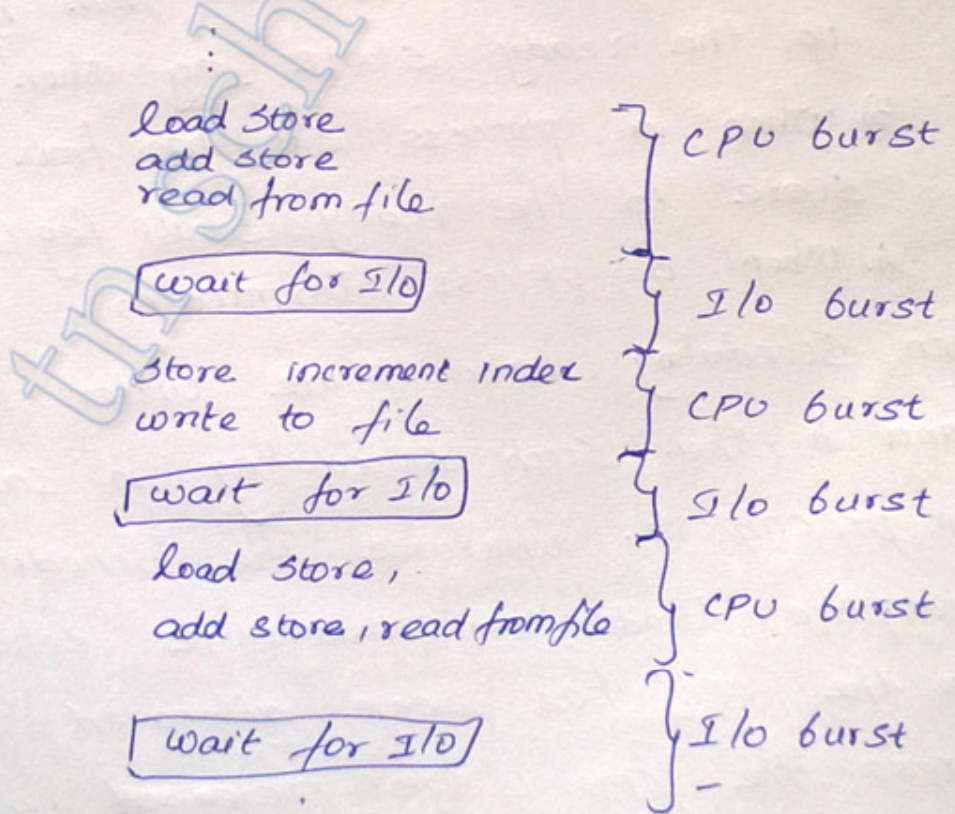 load store
add store
read from file
CPU burst
wait for I/o
I/o burst
store increment index
write to file
CPU burst
wait for I/o
I/o burst
load store,
add store, read from file
CPU burst
wait for I/o
I/o burst
tn sch